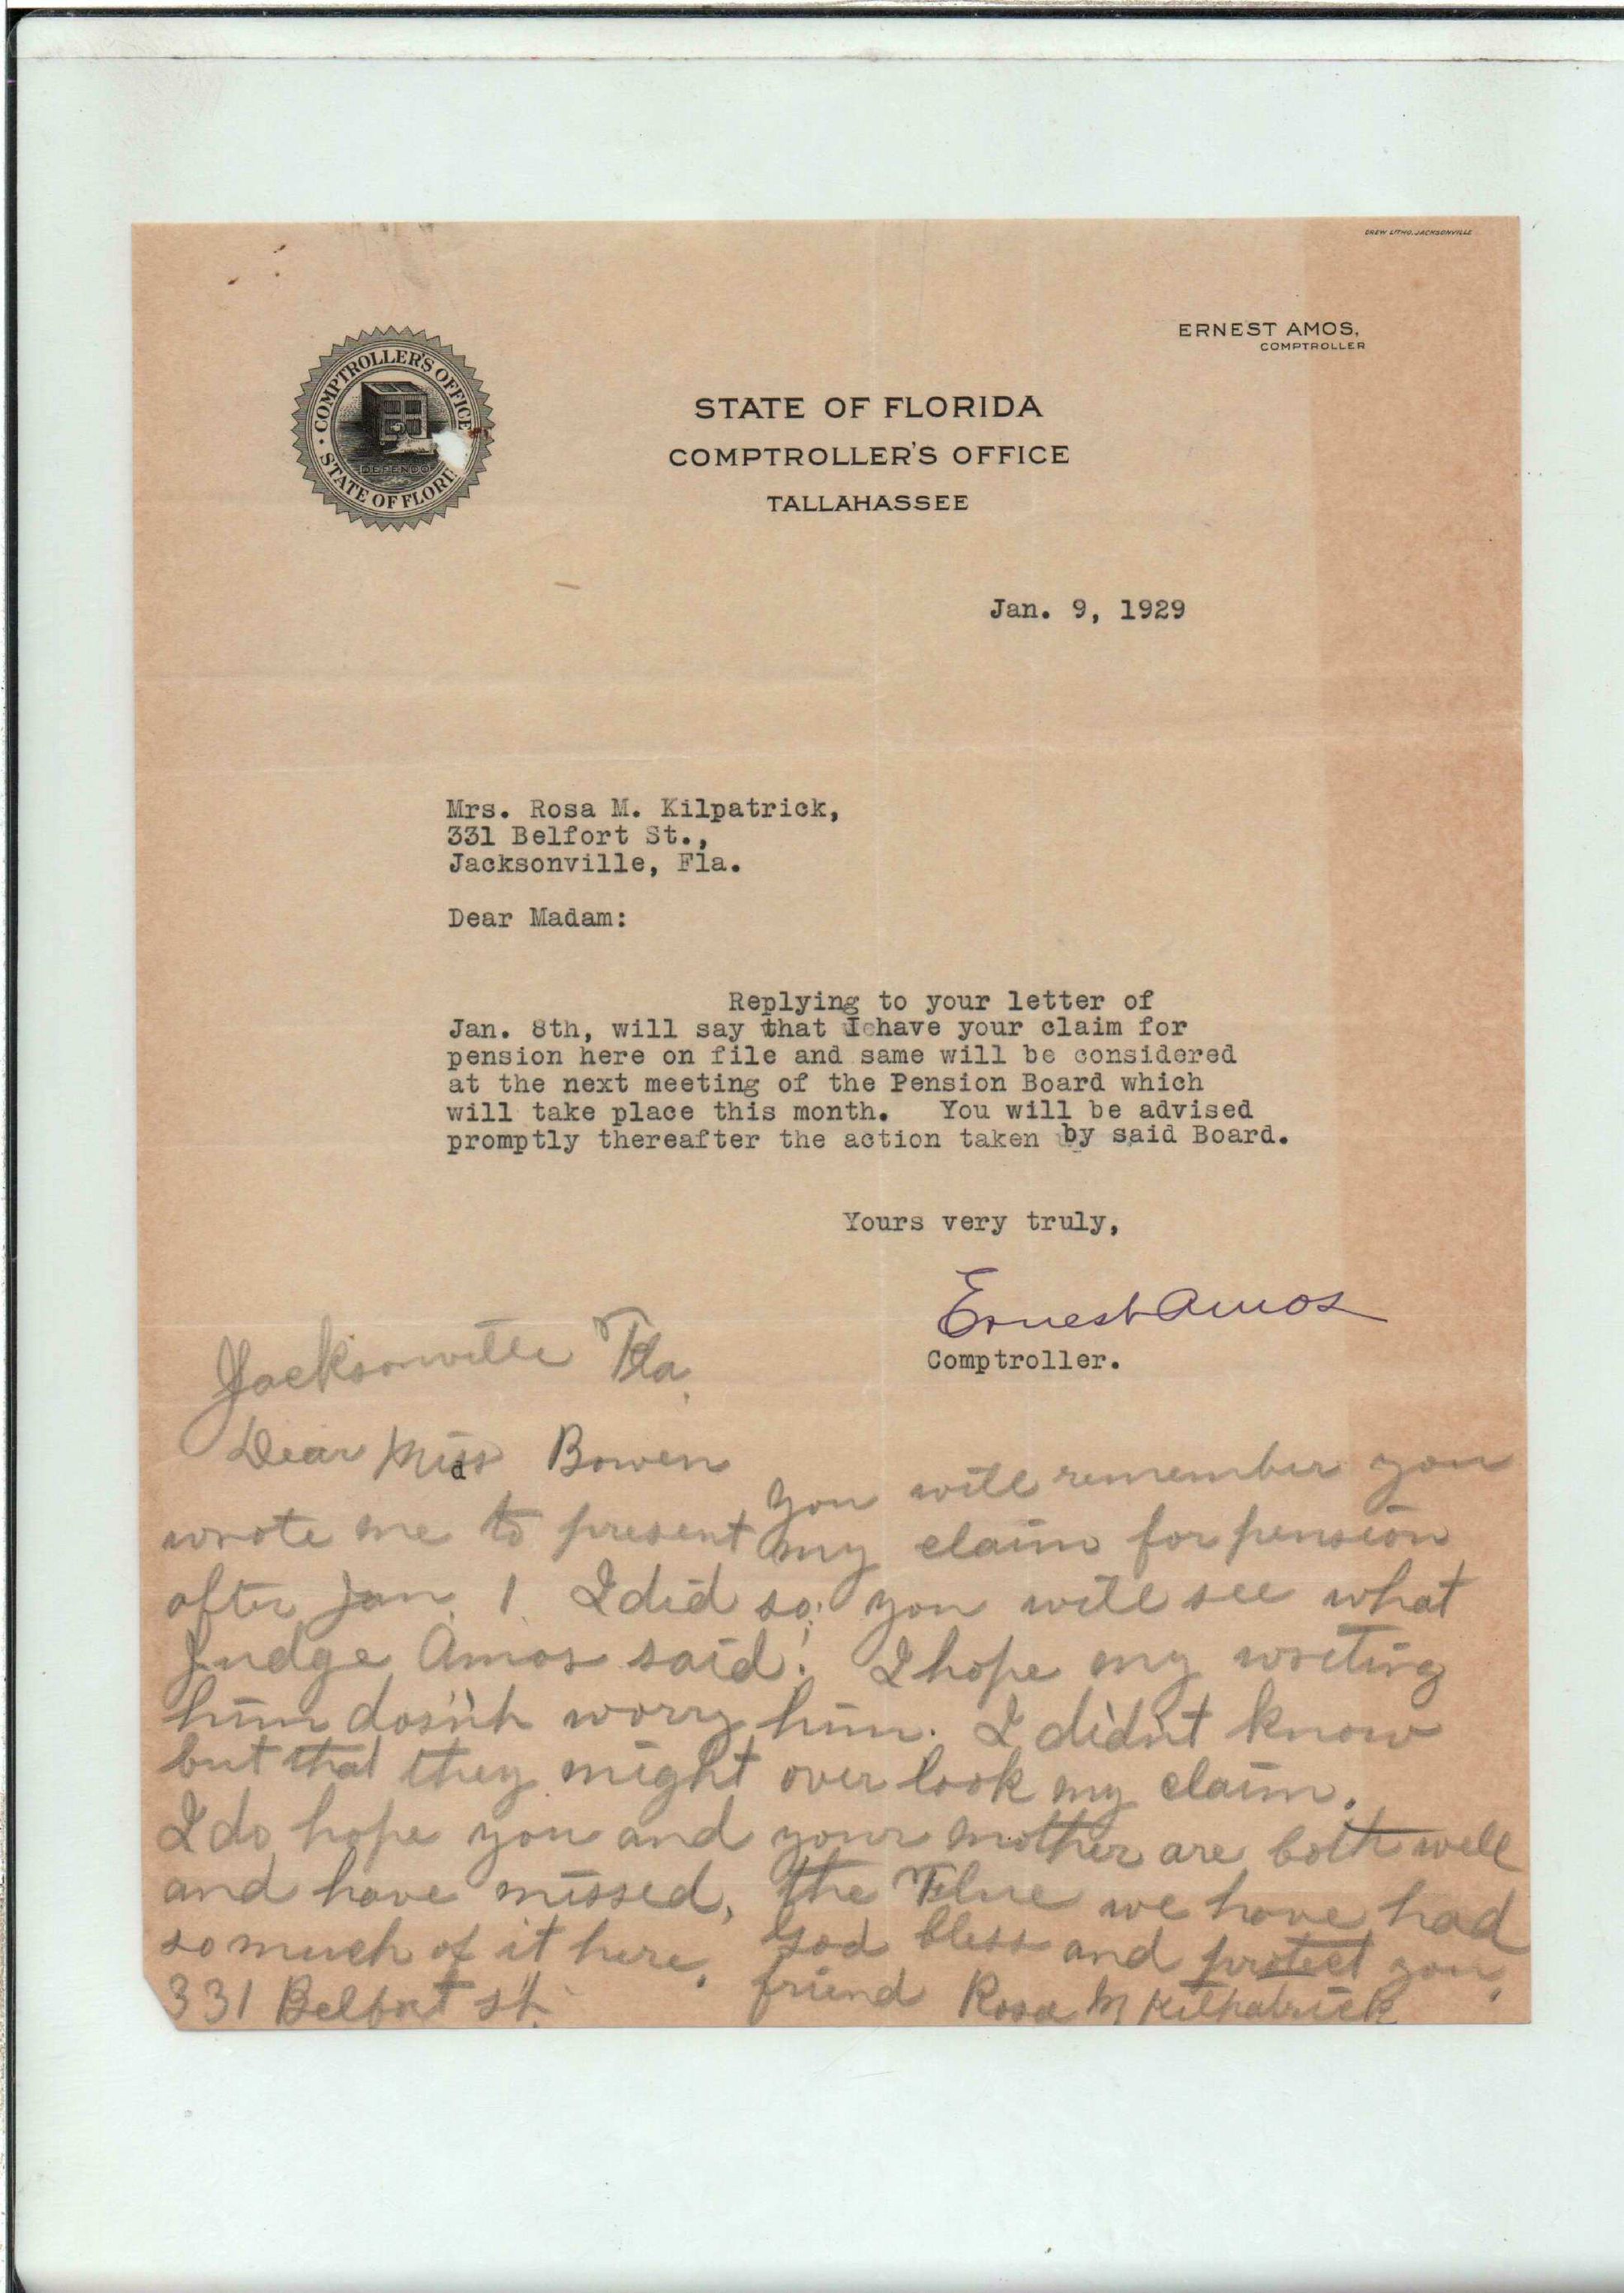 DREW LITHO. JACKSONVILLE
ERNEST AMOS,
COMPTROLLER
COMPTROLLER'S OFFICE
DEFENDO
STATE OF FLORI
STATE OF FLORIDA
COMPTROLLER'S OFFICE
TALLAHASSEE
Jan. 9, 1929
Mrs. Rosa M. Kilpatrick,
331 Belfort St.,
Jacksonville, Fla.
Dear Madam:
Replying to your letter of
Jan. 8th, will say that I have your claim for
pension here on file and same will be considered
at the next meeting of the Pension Board which
will take place this month. You will be advised
promptly thereafter the action taken by said Board.
Yours very truly,
Ernest Amos
Comptroller.
Jacksonville Fla.
Dear Miss Bowen
you will remember you
wrote me to present my claim for pension
after Jan. 1 I did so; you will see what
Judge Amos said! I hope my writing
him dosn't worry him. I didn't know
but that they might over look my claim.
I do hope you and your mother are both well
and have missed, the Flue we have had
so much of it here. God bless and protect you,
331 Belfort st. friend Rosa M Kilpatrick